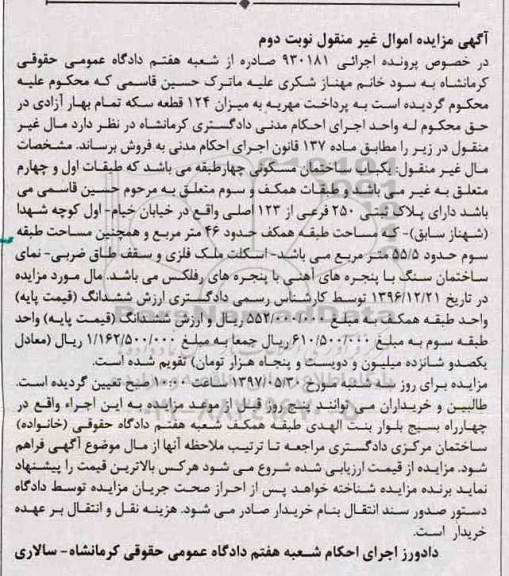 آگهی مزایده اموال غیر منقول نوبت دوم
در خصوص پرونده اجرائی ۹۳۰۱۸۱ صادره از شعبه هفتم دادگاه عمومی حقوقی
کرمانشاه به سود خانم مهناز شکری علیه ماترک حسین قاسمی که محکوم علیه
محکوم گردیده است به پرداخت مهریه به میزان ۱۲۴ قطعه سکه تمام بهار آزادی در
حق محکوم له واحد اجرای احکام مدنی دادگستری کرمانشاه در نظر دارد مال غیر
منقول در زیر را مطابق ماده ۱۳۷ قانون اجرای احکام مدنی به فروش برساند. مشخصات
مال غیر منقول: یکباب ساختمان مسکونی چهارطبقه می باشد که طبقات اول و چهارم
متعلق به غیر می باشد و طبقات همکف و سوم متعلق به مرحوم حسین قاسمی می
باشد دارای پلاک ثبتی ۲۵۰ فرعی از ۱۲۳ اصلی واقع در خیابان خیام- اول کوچه شهدا
(شهناز سابق)- که مساحت طبقه همکف حدود ۴۶ متر مربع و همچنین مساحت طبقه
سوم حدود ۵۵/۵ متر مربع می باشد- اسکلت ملک فلزی و سقف طاق ضربی- نمای
ساختمان سنگ با پنجره های آهنی با پنجره های رفلکس می باشد. مال مورد مزایده
در تاریخ ۱۳۹۶/۱۲/۲۱ توسط کارشناس رسمی دادگستری ارزش ششدانگ (قیمت پایه)
واحد طبقه همکف به مبلغ ۵۵۲/۰۰۰/۰۰۰ ریال و ارزش ششدانگ (قیمت پایه) واحد
طبقه سوم به مبلغ ۶۱۰/۵۰۰/۰۰۰ ریال جمعا به مبلغ ۱/۱۶۲/۵۰۰/۰۰۰ ریال (معادل
یکصدو شانزده میلیون و دویست و پنجاه هزار تومان) تقویم شده است.
مزایده برای روز سه شنبه مورخ ۱۳۹۷/۰۵/۳۰ ساعت ۱۰:۰۰ صبح تعیین گردیده است.
طالبین و خریداران می توانند پنج روز قبل از موعد مزایده به این اجراء واقع در
چهارراه بسیج بلوار بنت الهدی طبقه همکف شعبه هفتم دادگاه حقوقی (خانواده)
ساختمان مرکزی دادگستری مراجعه تا ترتیب ملاحظه آنها از مال موضوع آگهی فراهم
شود. مزایده از قیمت ارزیابی شده شروع می شود هرکس بالاترین قیمت را پیشنهاد
نماید برنده مزایده شناخته خواهد پس از احراز صحت جریان مزایده توسط دادگاه
دستور صدور سند انتقال بنام خریدار صادر می شود. هزینه نقل و انتقال بر عهده
خریدار است.
دادورز اجرای احکام شعبه هفتم دادگاه عمومی حقوقی کرمانشاه- سالاری